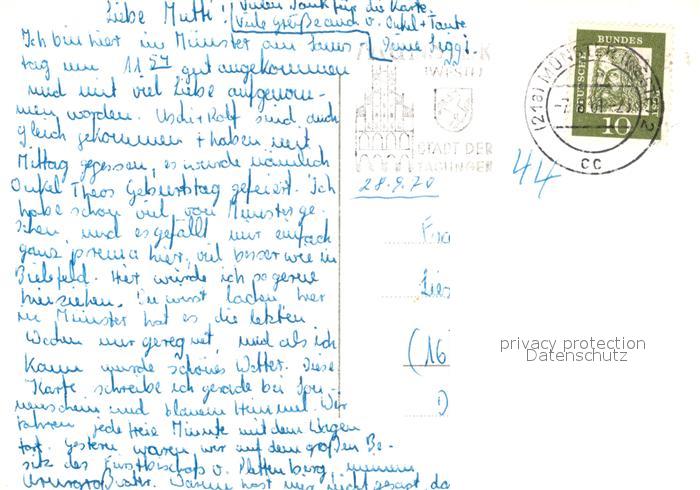 Liebe Mutti!
Vielen Dank für die Karte.
Viele Grüße auch v. Onkel + Tante
Deine Siggi.
Ich bin hier in Münster am Sams
tag um 11 57 gut angekommen
und mit viel Liebe aufgenom-
men worden. Uschi + Rolf sind auch
gleich gekommen + haben mit
Mittag gegessen, es wurde nämlich
Onkel Theos Geburtstag gefeiert. Ich
habe schon viel von Münster ge-
sehen und es gefällt mir einfach
ganz prima hier, viel besser wie in
Bielefeld. Hier würde ich so gerne
hinziehen. Du wirst lachen, hier
in Münster hat es die letzten
Wochen nur geregnet, und als ich
kam wurde schönes Wetter. Diese
Karte schreibe ich gerade bei Son-
nenschein und blauem Himmel. Wir
fahren jede freie Minute mit dem Wagen
fort. Gestern waren wir auf dem großen Be-
sitz des Fürstbischofs v. Plettenberg, meinem
Ururgroßvater. Warum hast mir nicht gesagt, da
(WESTF)
STADT DER
TAGUNGEN
28.9.70
44
DEUTSCHE
BUNDES
10
(21a) MÜNSTER
cc
(16
privacy protection
Datenschutz